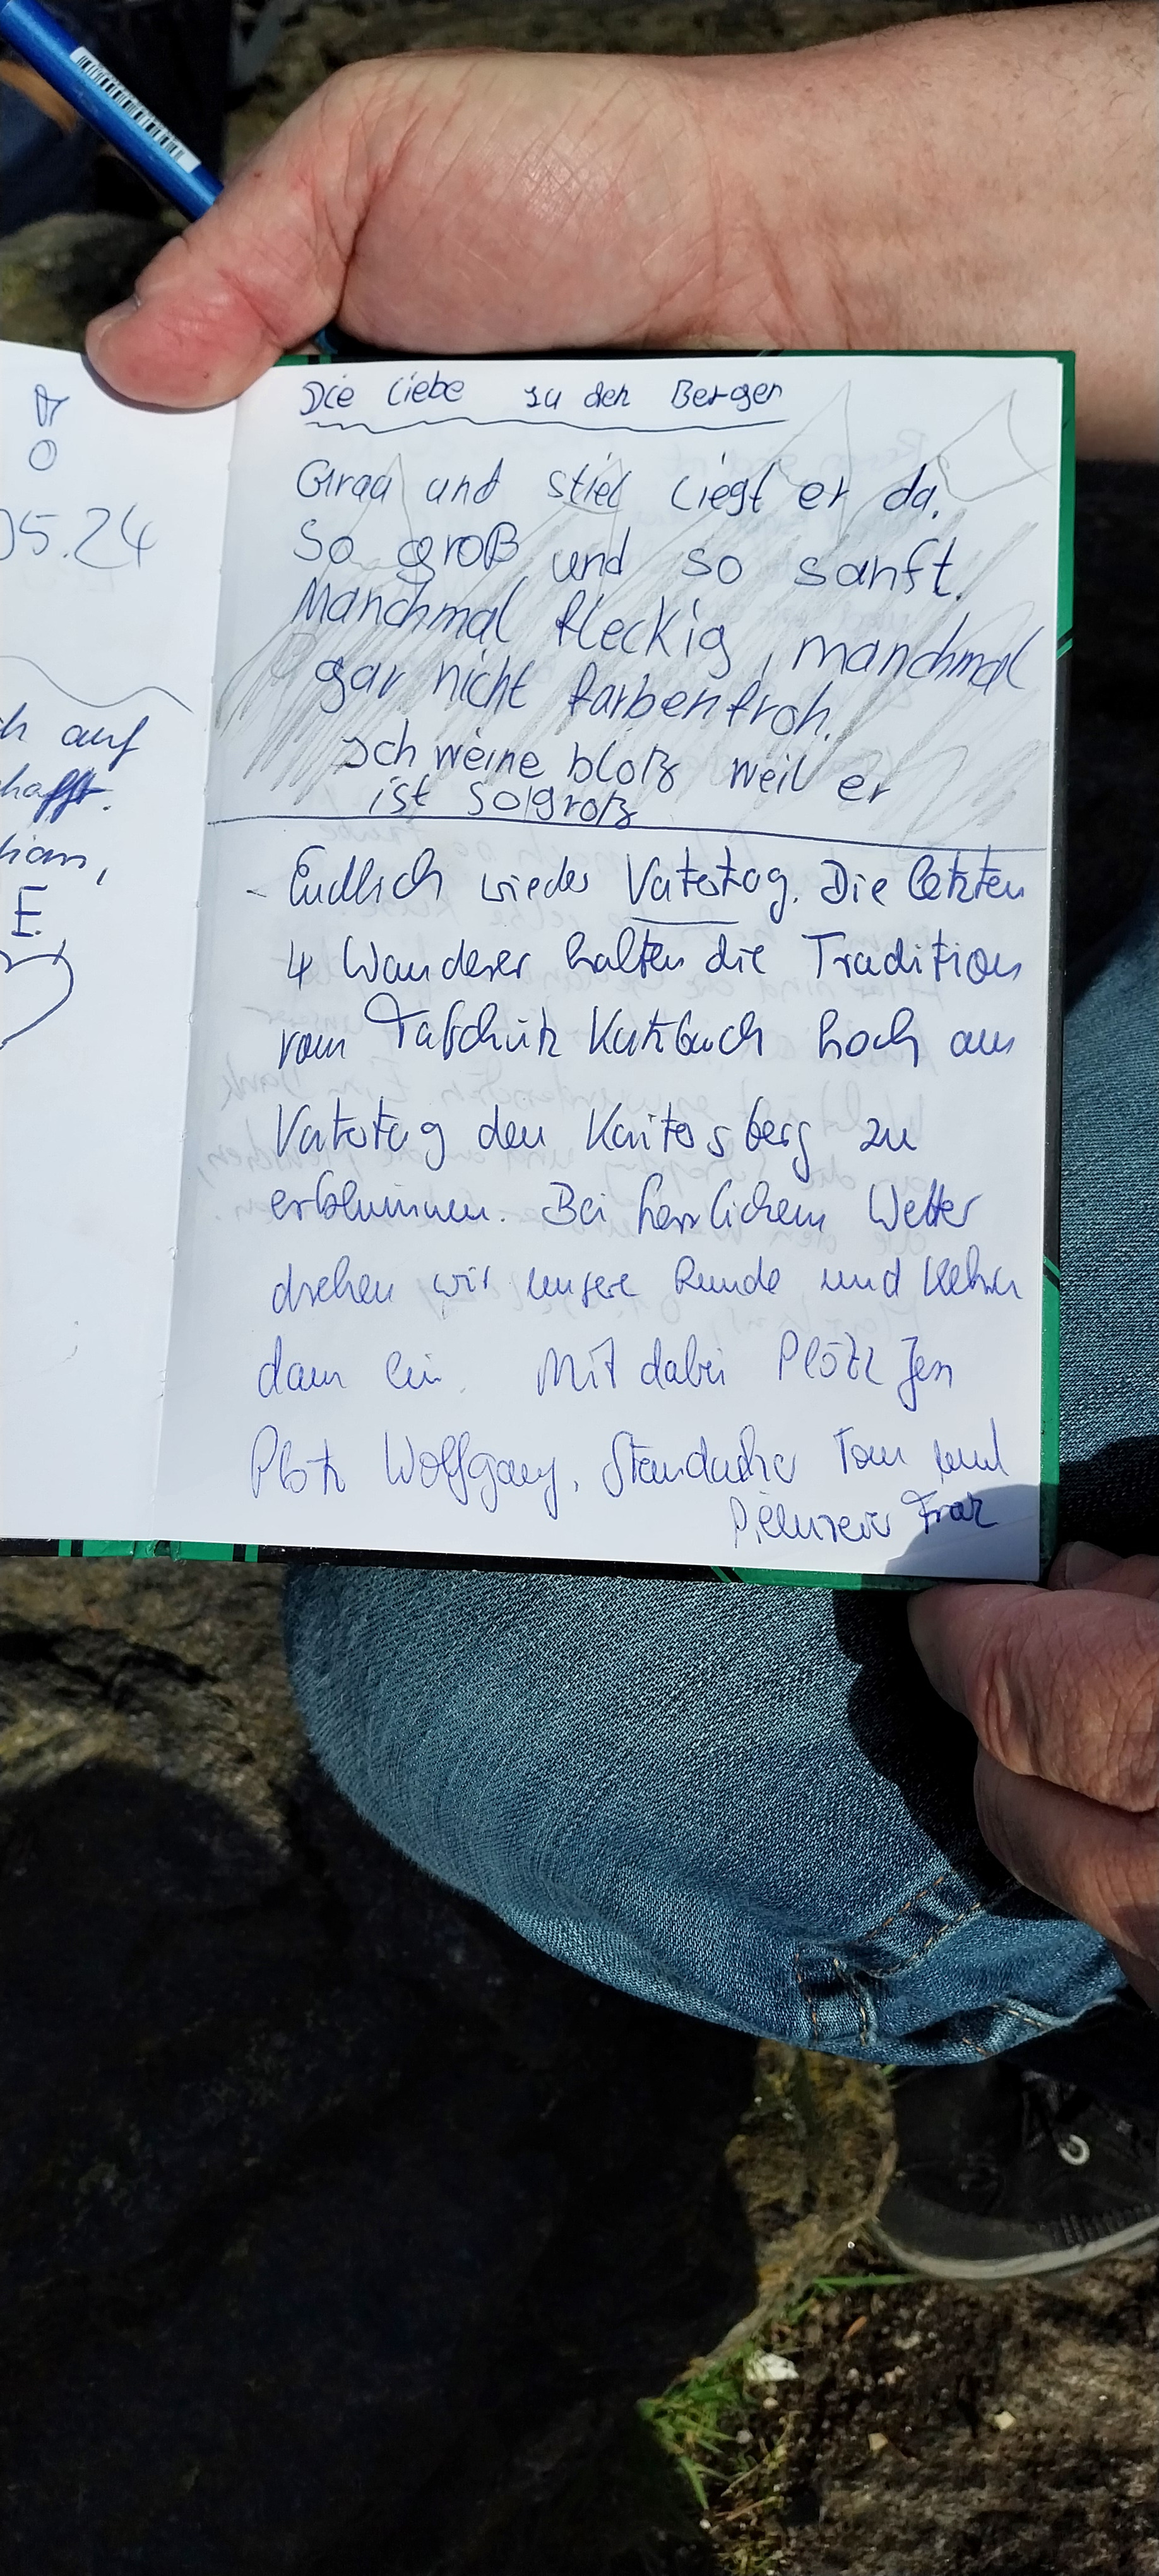 05.24
h auf
hafft.
E.
Die Liebe zu den Bergen
Grau und stiel liegt er da.
So groß und so sanft.
Manchmal fleckig, manchmal
gar nicht farbenfroh.
Ich weine bloß weil er
ist so groß
- Endlich wieder Vatertag. Die letzten
4 Wanderer halten die Tradition
vom Katzbach hoch am
Vatertag den Kaitersberg zu
erklimmen. Bei herrlichem Wetter
drehen wir unsere Runde und kehren
dann ein. Mit dabei Plötz Jens
Plötz Wolfgang, Tom und